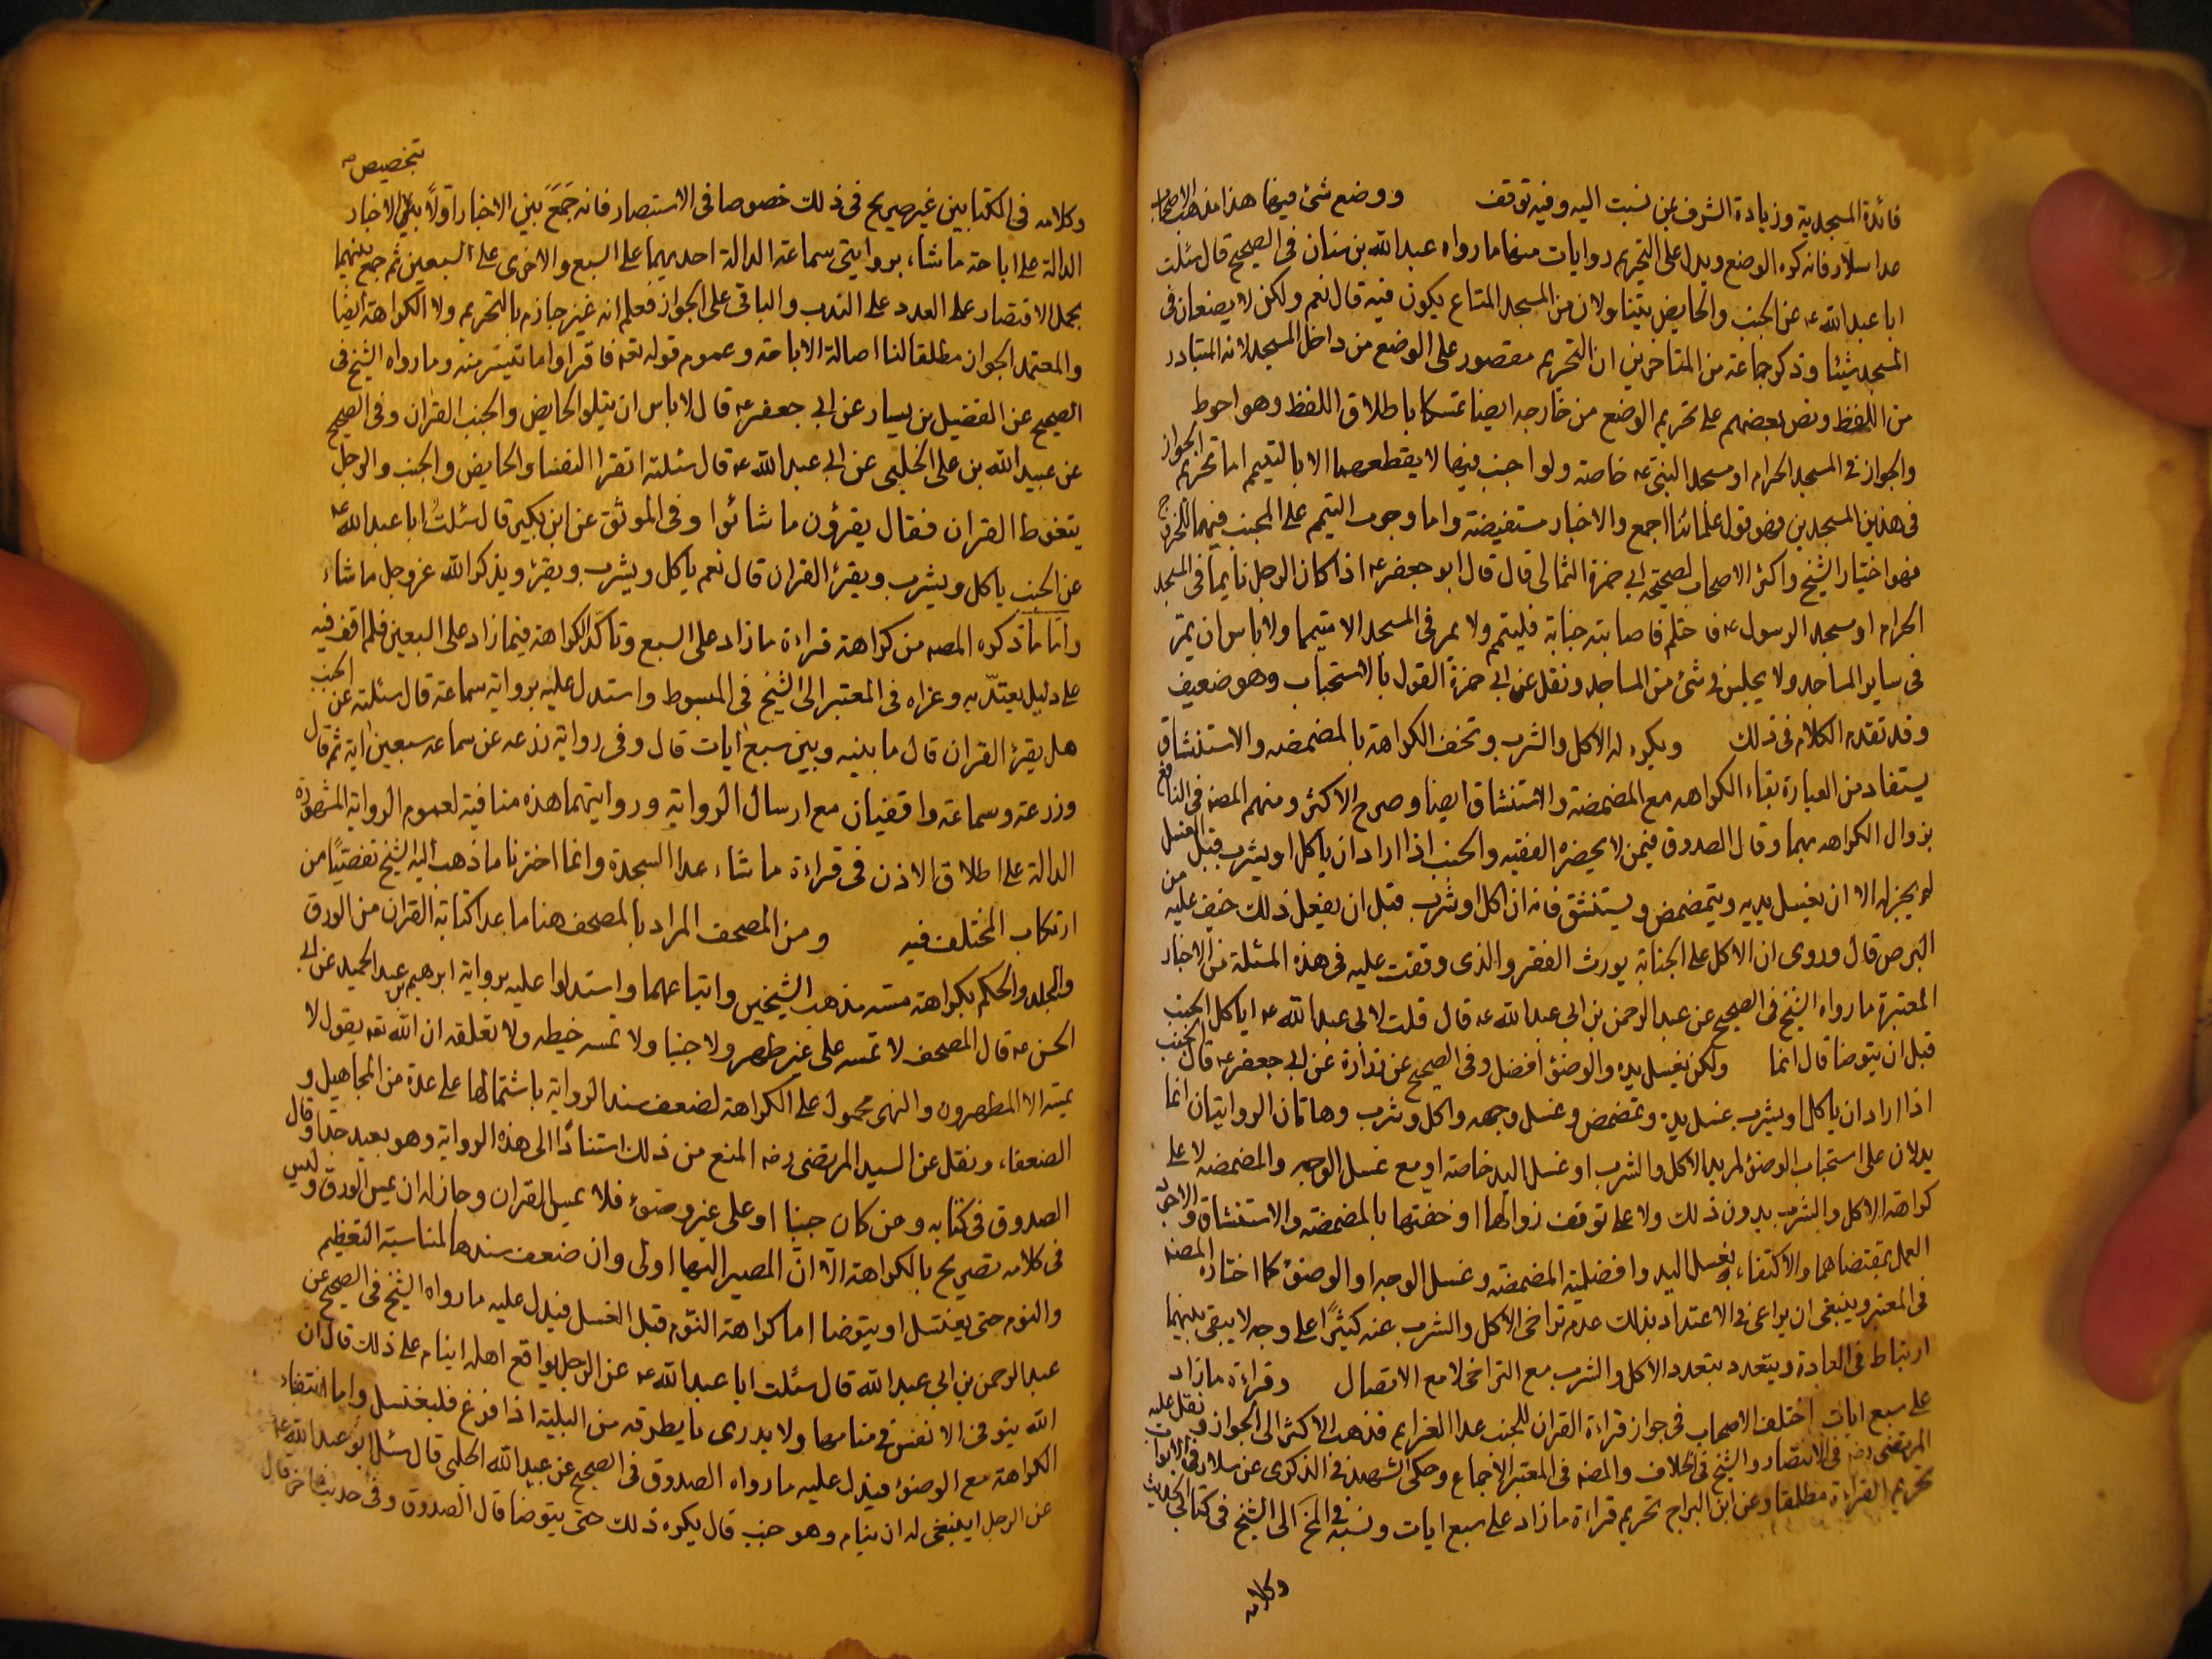 فائدة المسجدية وزيادة الشرف عن نسبت اليه وفيه توقف ووضع شئ فيها هذا مذهب الاصحاب
عدا سلار فانه كره الوضع ويدل على التحريم روايات منها ما رواه عبد الله بن سنان في الصحيح قال سئلت
ابا عبد الله ع عن الجنب والحايض يتناولان من المسجد المتاع يكون فيه قال نعم ولكن لا يضعان في
المسجد شيئا وذكر جماعة من المتاخرين ان التحريم مقصور على الوضع من داخل المسجد لانه المتبادر
من اللفظ ونص بعضهم على تحريم الوضع من خارجه ايضا تمسكا باطلاق اللفظ وهو احوط
والجواز في المسجد الحرام او مسجد النبي ع خاصة ولو اجنب فيهما لا يقطعهما الا بالتيمم اما تحريم الجواز
في هذين المسجدين فهو قول علمائنا اجمع والاخبار مستفيضة واما وجوب التيمم على المجنب فيهما للخروج
فهو اختيار الشيخ واكثر الاصحاب لصحيحة ابي حمزة الثمالي قال قال ابو جعفر ع اذا كان الرجل نايما في المسجد
الحرام او مسجد الرسول ع فاحتلم فاصابته جنابة فليتمم ولا يمر في المسجد الا متيمما ولا باس ان يمر
في ساير المساجد ولا يجلس في شئ من المساجد ونقل عن ابي حمزة القول بالاستحباب وهو ضعيف
وقد تقدم الكلام في ذلك ويكره له الاكل والشرب وتخف الكراهة بالمضمضه والاستنشاق
يستفاد من العبارة بقاء الكراهه مع المضمضة والاستنشاق ايضا وصرح الاكثر ومنهم المصه في النافع
بزوال الكراهه بهما وقال الصدوق فيمن لا يحضره الفقيه والجنب اذا اراد ان ياكل او يشرب قبل الغسل
لم يجز له الا ان يغسل يديه ويتمضمض ويستنشق فانه ان اكل او شرب قبل ان يفعل ذلك خيف عليه من
البرص قال وروى ان الاكل على الجنابة يورث الفقر والذى وقفت عليه في هذه المسئلة من الاخبار
المعتبرة ما رواه الشيخ في الصحيح عن عبد الرحمن بن ابي عبد الله ع قال قلت لابي عبد الله ع اياكل الجنب
قبل ان يتوضا قال انما ولكن يغسل يده والوضوء افضل وفي الصحيح عن زرارة عن ابي جعفر ع قال الجنب
اذا اراد ان ياكل او يشرب غسل يده وتمضمض وغسل وجهه واكل وشرب وهاتان الروايتان انما
يدلان على استحباب الوضوء لمريد الاكل والشرب او غسل اليد خاصة او مع غسل الوجه والمضمضه لا على
كراهة الاكل والشرب بدون ذلك ولا على توقف زوالها او خفتها بالمضمضة والاستنشاق والاجود
العمل بمقتضاهما والاكتفاء بغسل اليد وافضلية المضمضة وغسل الوجه او الوضوء كما اختاره المصه
في المعتبر وينبغي ان يراعى في الاعتداد بذلك عدم تراخي الاكل والشرب عنه كثيرا على وجه لا يبقى بينهما
ارتباط في العادة ويتعدد بتعدد الاكل والشرب مع التراخي لا مع الاتصال وقراءة ما زاد
على سبع ايات اختلف الاصحاب في جواز قراءة القران للجنب عدا العزايم فذهب الاكثر الى الجواز ونقل عليه
المرتضى رضه في الانتصار والشيخ في الخلاف والمصه في المعتبر الاجماع وحكى الشهيد في الذكرى عن سلار في الابواب
تحريم القراءة مطلقا وعن ابن البراج تحريم قراءة ما زاد على سبع ايات ونسبه في المخ الى الشيخ في كتابي الحديث
وكلامه
تخصيص
وكلامه في الكتابين غير صريح في ذلك خصوصا في الاستبصار فانه جمع بين الاخبار اولا بين الاخبار
الدالة على اباحة ما شاء بروايتى سماعة الدالة احديهما على السبع والاخرى على السبعين ثم جمع بينهما
بحمل الاقتصار على العدد على الندب والباقي على الجواز فعلم انه غير جازم بالتحريم ولا الكراهة ايضا
والمعتمد الجواز مطلقا لنا اصالة الاباحة وعموم قوله تعه فاقراوا ما تيسر منه وما رواه الشيخ في
الصحيح عن الفضيل بن يسار عن ابي جعفر ع قال لا باس ان يتلو الحايض والجنب القران وفي الصحيح
عن عبيد الله بن على الحلبي عن ابي عبد الله ع قال سئلته اتقرا النفسا والحايض والجنب والرجل
يتغوط القران فقال يقرؤن ما شائوا وفي الموثق عن ابن بكير قال سئلت ابا عبد الله ع
عن الجنب ياكل ويشرب ويقرء القران قال نعم ياكل ويشرب ويقرء ويذكر الله عز وجل ما شاء
واما ما ذكره المصه من كراهة قراءة ما زاد على السبع وتاكد الكراهة فيما زاد على السبعين فلم اقف فيه
على دليل يعتد به وعزاه في المعتبر الى الشيخ في المبسوط واستدل عليه برواية سماعة قال سئلته عن الجنب
هل يقرء القران قال ما بينه وبين سبع ايات قال وفي رواية زرعه عن سماعه سبعين اية ثم قال
وزرعة وسماعة واقفيان مع ارسال الرواية وروايتهما هذه منافية لعموم الرواية المشهورة
الدالة على اطلاق الاذن في قراءة ما شاء عدا السجدة وانما اخترنا ما ذهب اليه الشيخ تفصيا من
ارتكاب المختلف فيه ومن المصحف المراد بالمصحف هنا ما عدا كتابة القران من الورق
والجلد والحكم بكراهة مسه مذهب الشيخين واتباعهما واستدلوا عليه برواية ابرهيم بن عبد الحميد عن ابي
الحسن ع قال المصحف لا تمسه على غير طهر ولا جنبا ولا تمس خيطه ولا تعلقه ان الله تعه يقول لا
يمسه الا المطهرون والنهى محمول على الكراهة لضعف سند الرواية باشتمالها على عدة من المجاهيل و
الضعفاء ونقل عن السيد المرتضى رضه المنع من ذلك استنادا الى هذه الرواية وهو بعيد جدا وقال
الصدوق في كتابه ومن كان جنبا او على غير وضوء فلا يمس القران وجاز له ان يمس الورق وليس
في كلامه تصريح بالكراهة الا ان المصير اليها اولى وان ضعف سندها لمناسبة التعظيم
والنوم حتى يغتسل او يتوضا اما كراهة النوم قبل الغسل فيدل عليه ما رواه الشيخ في الصحيح عن
عبد الرحمن بن ابي عبد الله قال سئلت ابا عبد الله ع عن الرجل يواقع اهله اينام على ذلك قال ان
الله يتوفى الانفس في منامها ولا يدرى ما يطرقه من البلية اذا فرغ فليغتسل واما انتفاء
الكراهة مع الوضوء فيدل عليه ما رواه الصدوق في الصحيح عن عبيد الله الحلبي قال سئل ابو عبد الله ع
عن الرجل اينبغي له ان ينام وهو جنب قال يكره ذلك حتى يتوضا قال الصدوق وفي حديث اخر قال